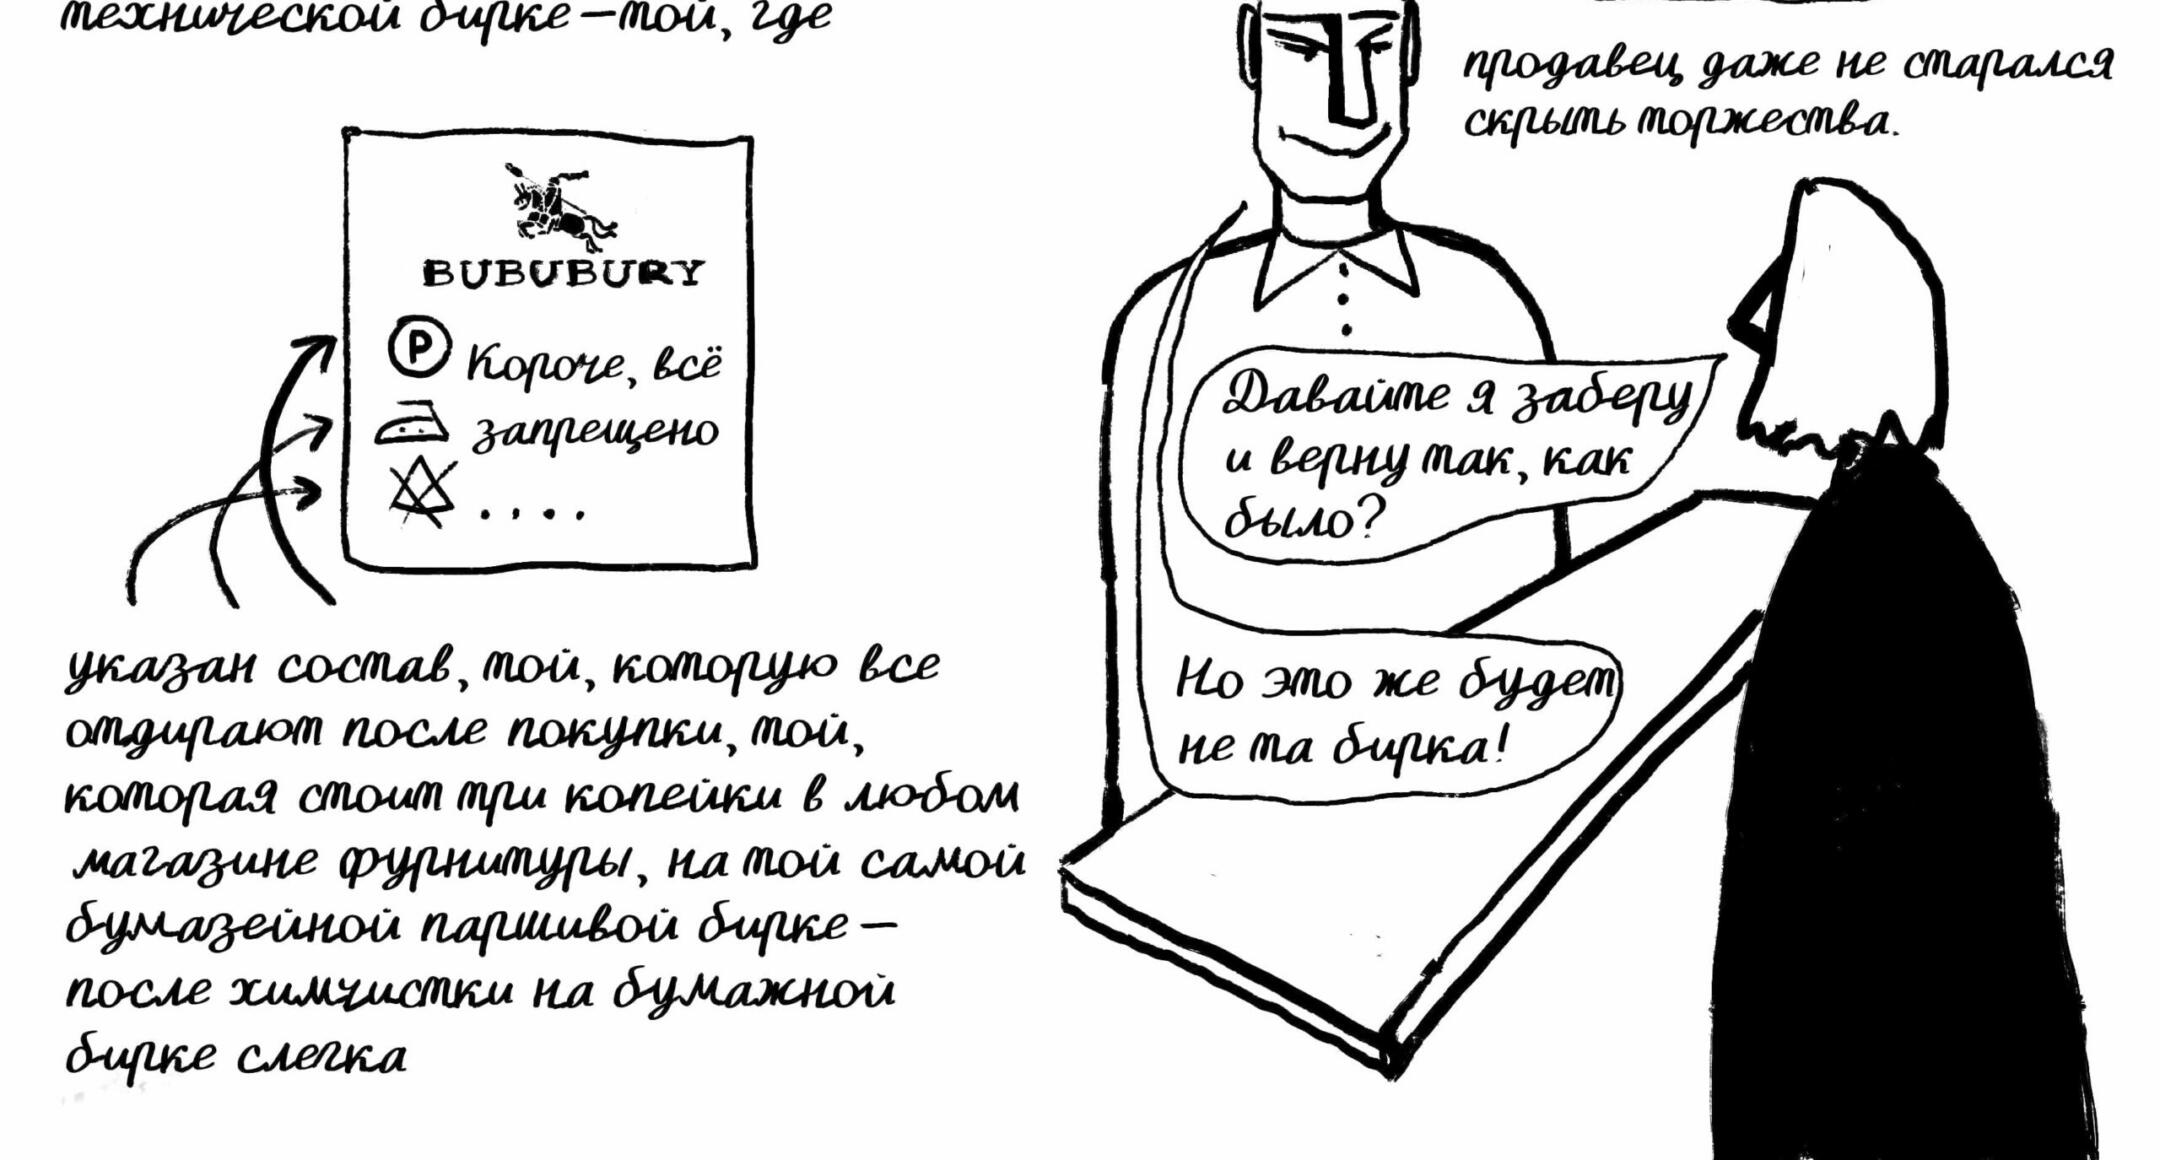 технической бирке – той, где
BUBUBURY
P Короче, всё
запрещено
....
указан состав, той, которую все
отдирают после покупки, той,
которая стоит три копейки в любом
магазине фурнитуры, на той самой
бумазейной паршивой бирке –
после химчистки на бумажной
бирке слегка
продавец даже не старался
скрыть торжества.
Давайте я заберу
и верну так, как
было?
Но это же будет
не та бирка!